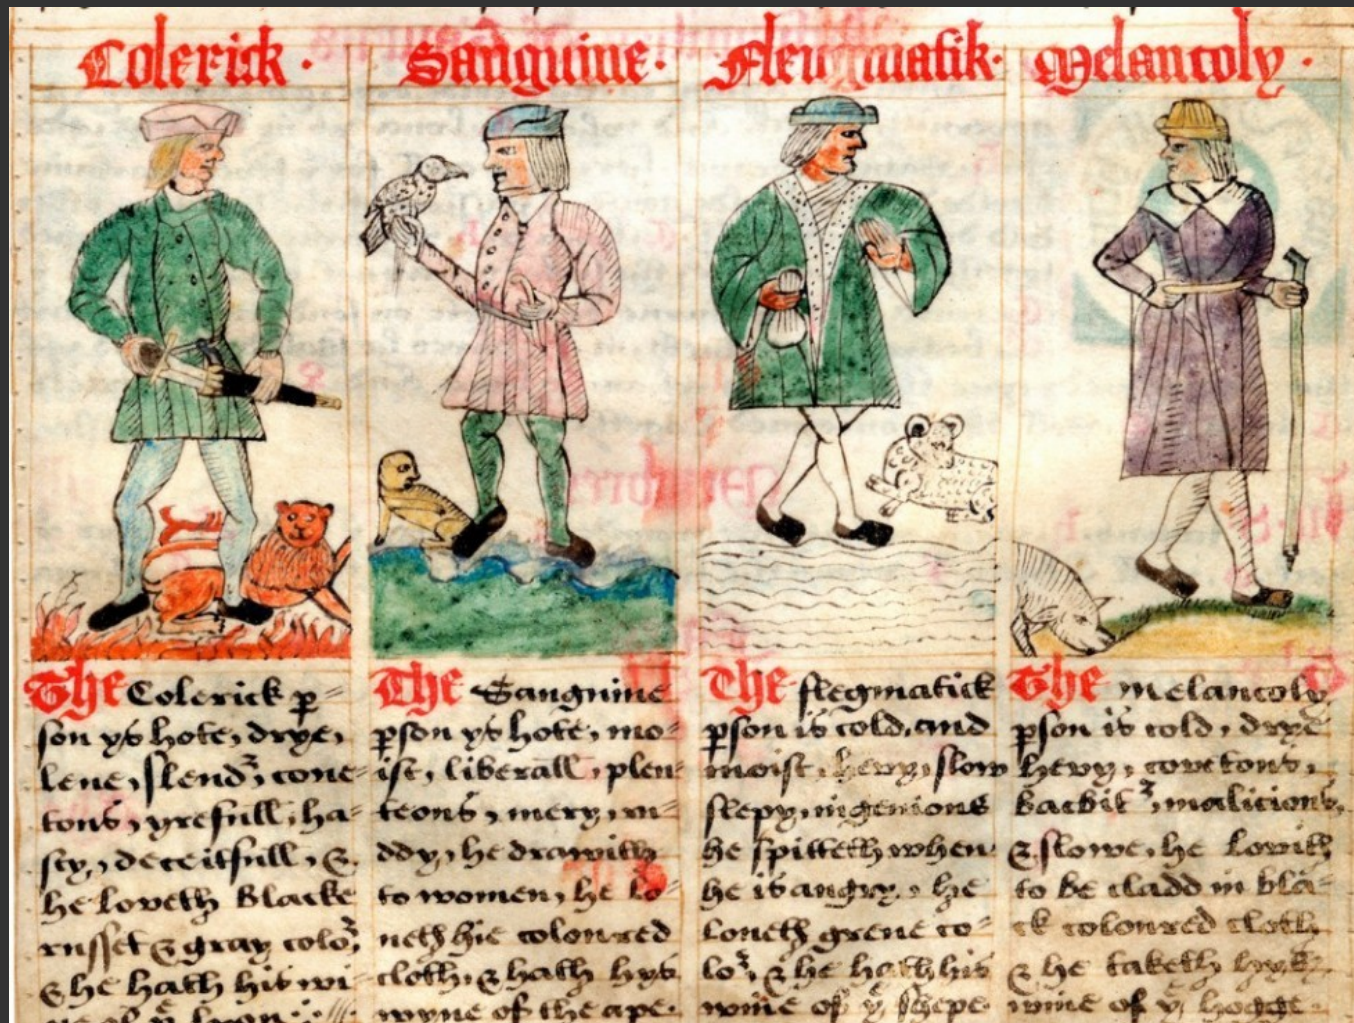 Colerick .
Sanguine .
Flewgmatik .
Melancoly .
The Colerick p =
son ys hote, drye,
lene, slendr, cove =
tous, yrefull, ha =
sty, deceitfull, &
he loveth Blacke
russet & gray color,
& he hath his wi =
ne of ye lyon
The Sanguine
pson ys hote, mo =
ist, liberall, plen =
teous, mery, ru =
ddy, he drawith
to women, he lo =
veth hie coloured
cloth, & hath hys
wyne of the ape .
The flegmatick
pson is cold, and
moist, hevy, slow
slepy, ingenious
he spitteth when
he is angry, he
loveth grene co =
lor, & he hath his
wine of ye shepe .
The melancoly
pson is cold, drye
hevy, covetous,
backbitr, malicious,
& slowe, he lovith
to be cladd in bla =
ck coloured cloth
& he taketh hys
wine of ye hogge .